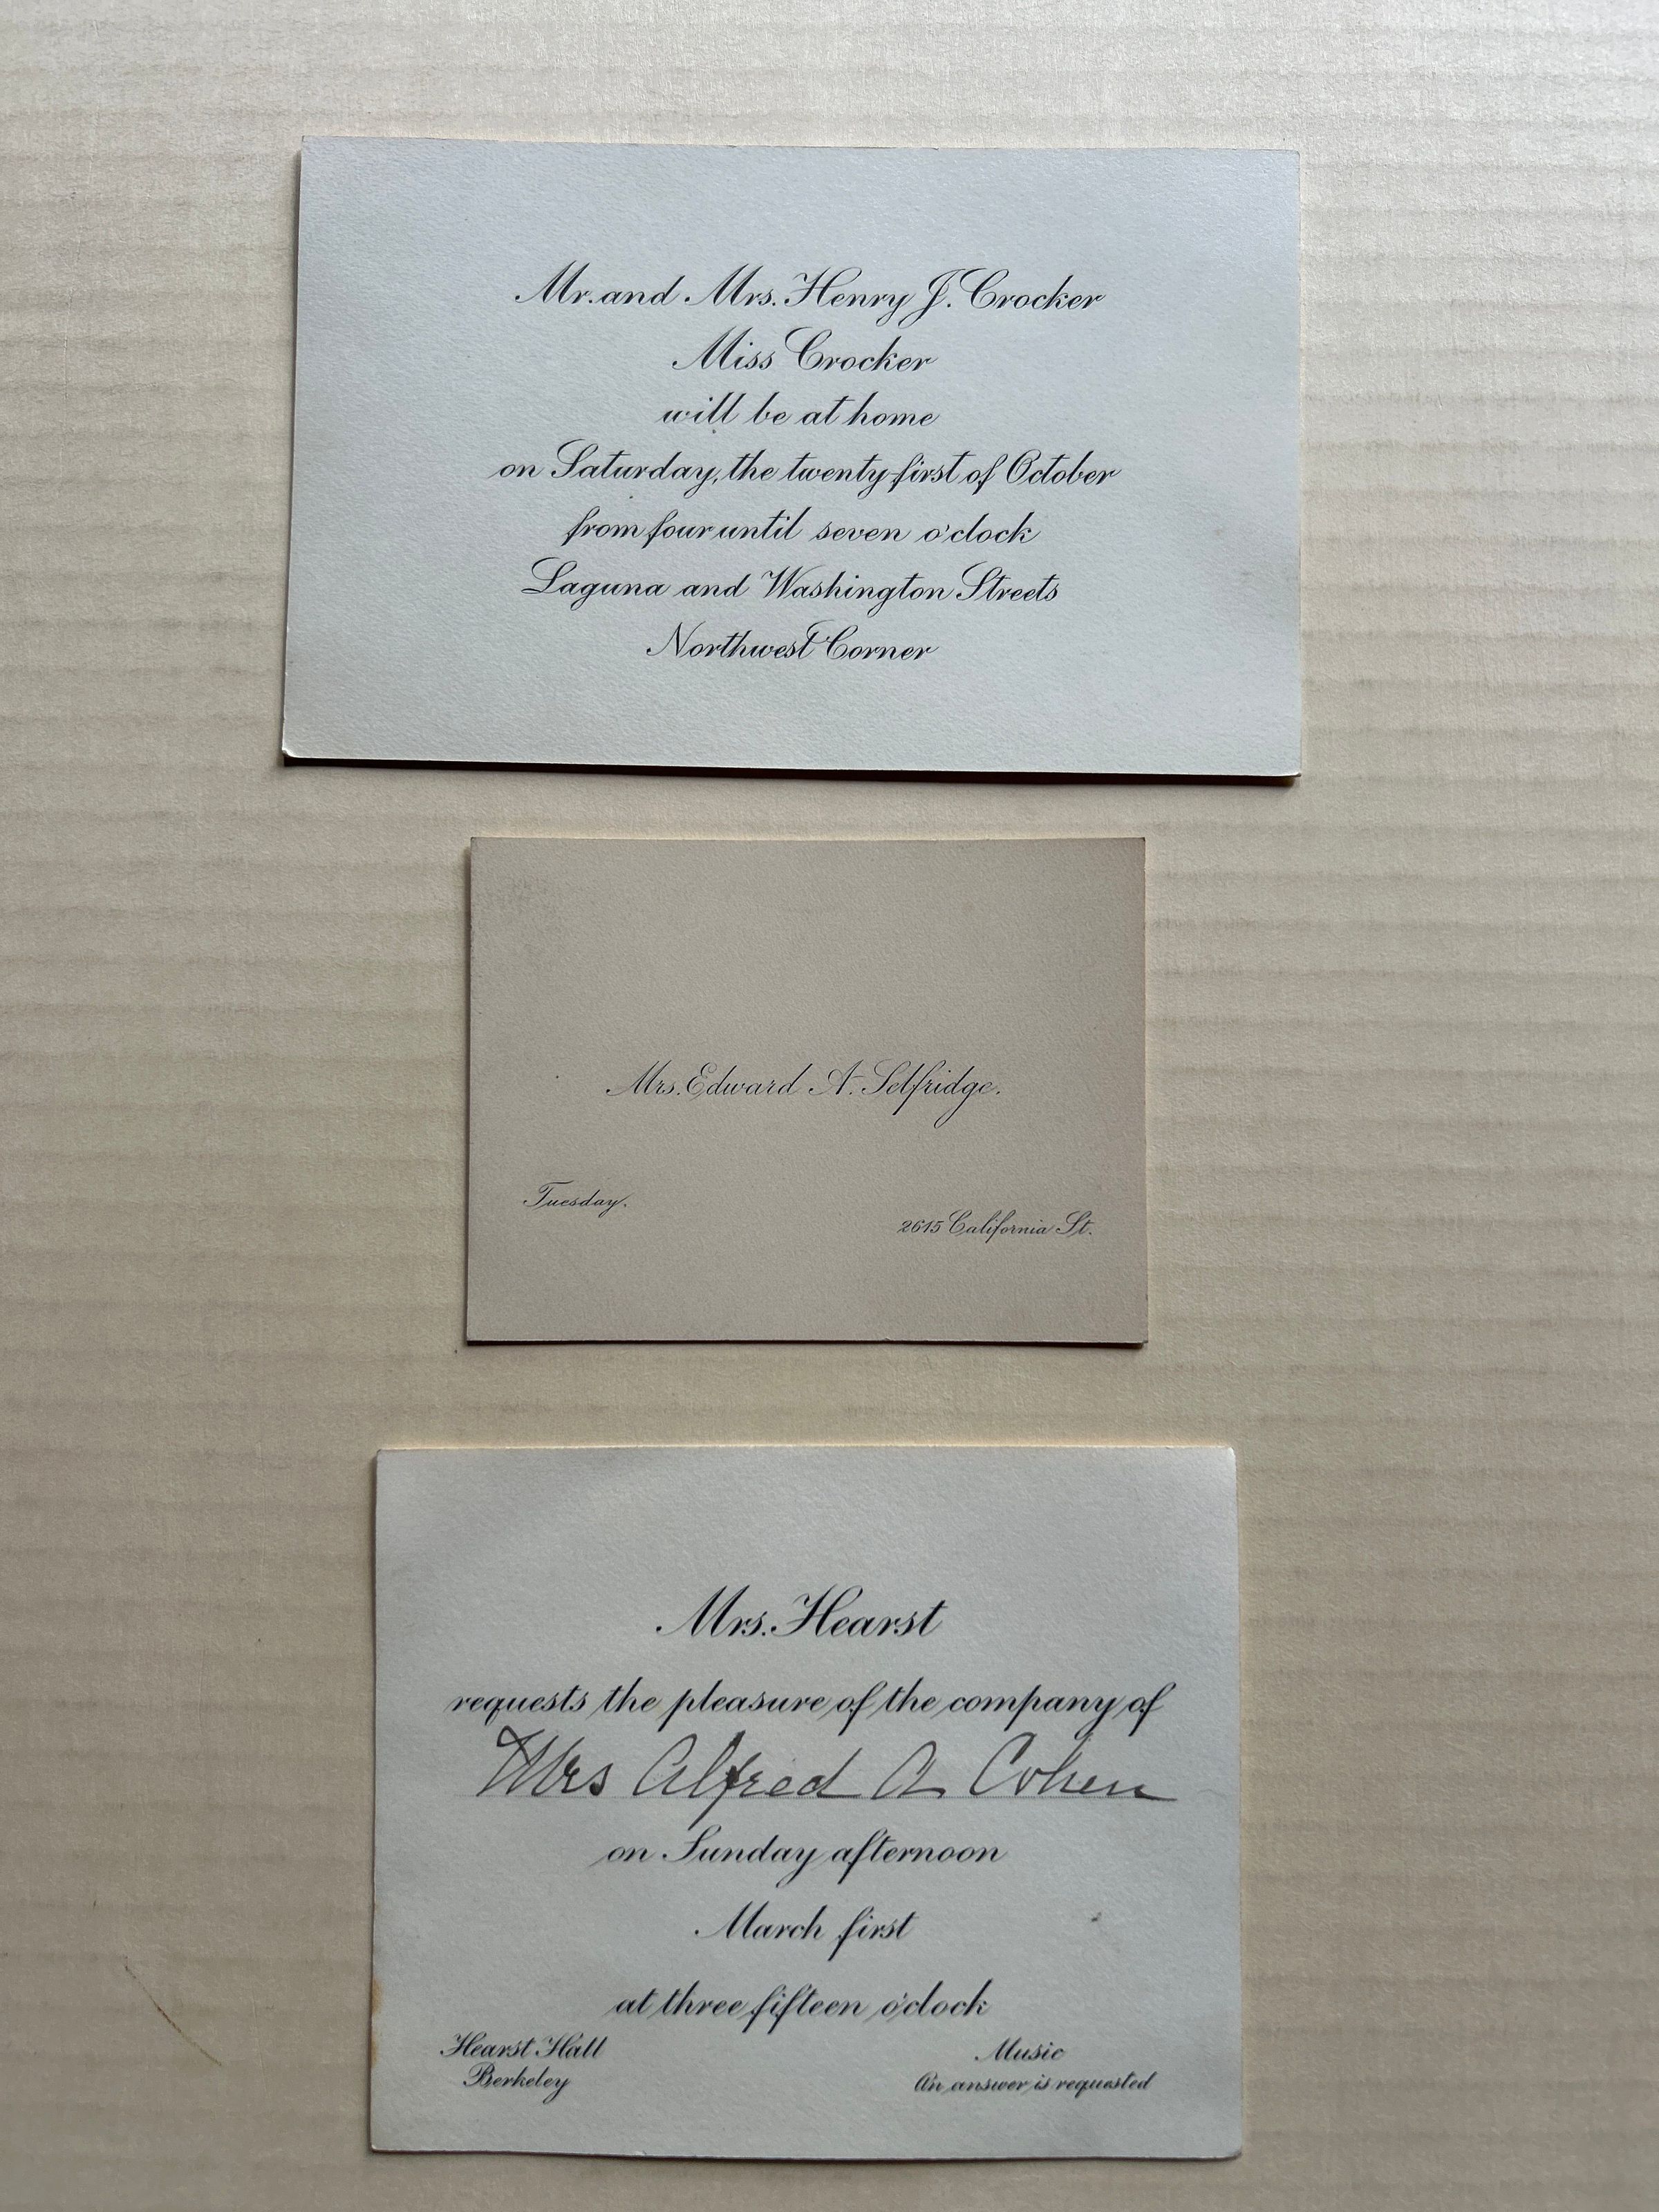 Mr. and Mrs. Henry J. Crocker
Miss Crocker
will be at home
on Saturday, the twenty-first of October
from four until seven o'clock
Laguna and Washington Streets
Northwest Corner
Mrs. Edward A. Selfridge.
Tuesday.
2615 California St.
Mrs. Hearst
requests the pleasure of the company of
Mrs Alfred A Cohen
on Sunday afternoon
March first
at three fifteen o'clock
Hearst Hall
Berkeley
Music
An answer is requested